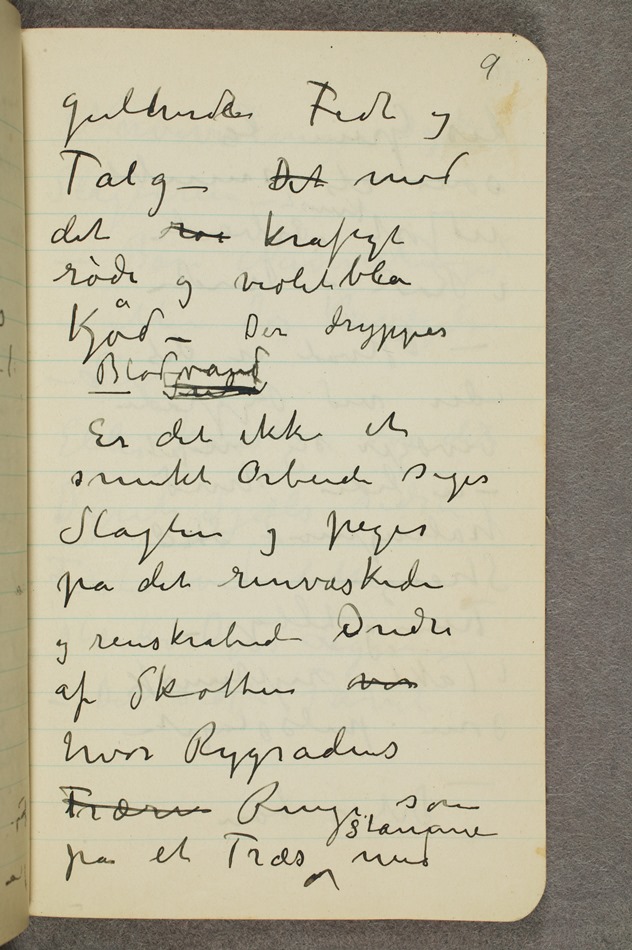 9
gulhvide Fedt og
Talg – Det med
det kraftigt
røde og violetblå
Kjød – Der drypper
Blodvand
Er det ikke et
smukt Arbeide siger
Slagteren og peger
på det renvaskede
og renskrabede Indre
af Skotten
hvor Rygradens
Ringe som
stamme
på et Træs med